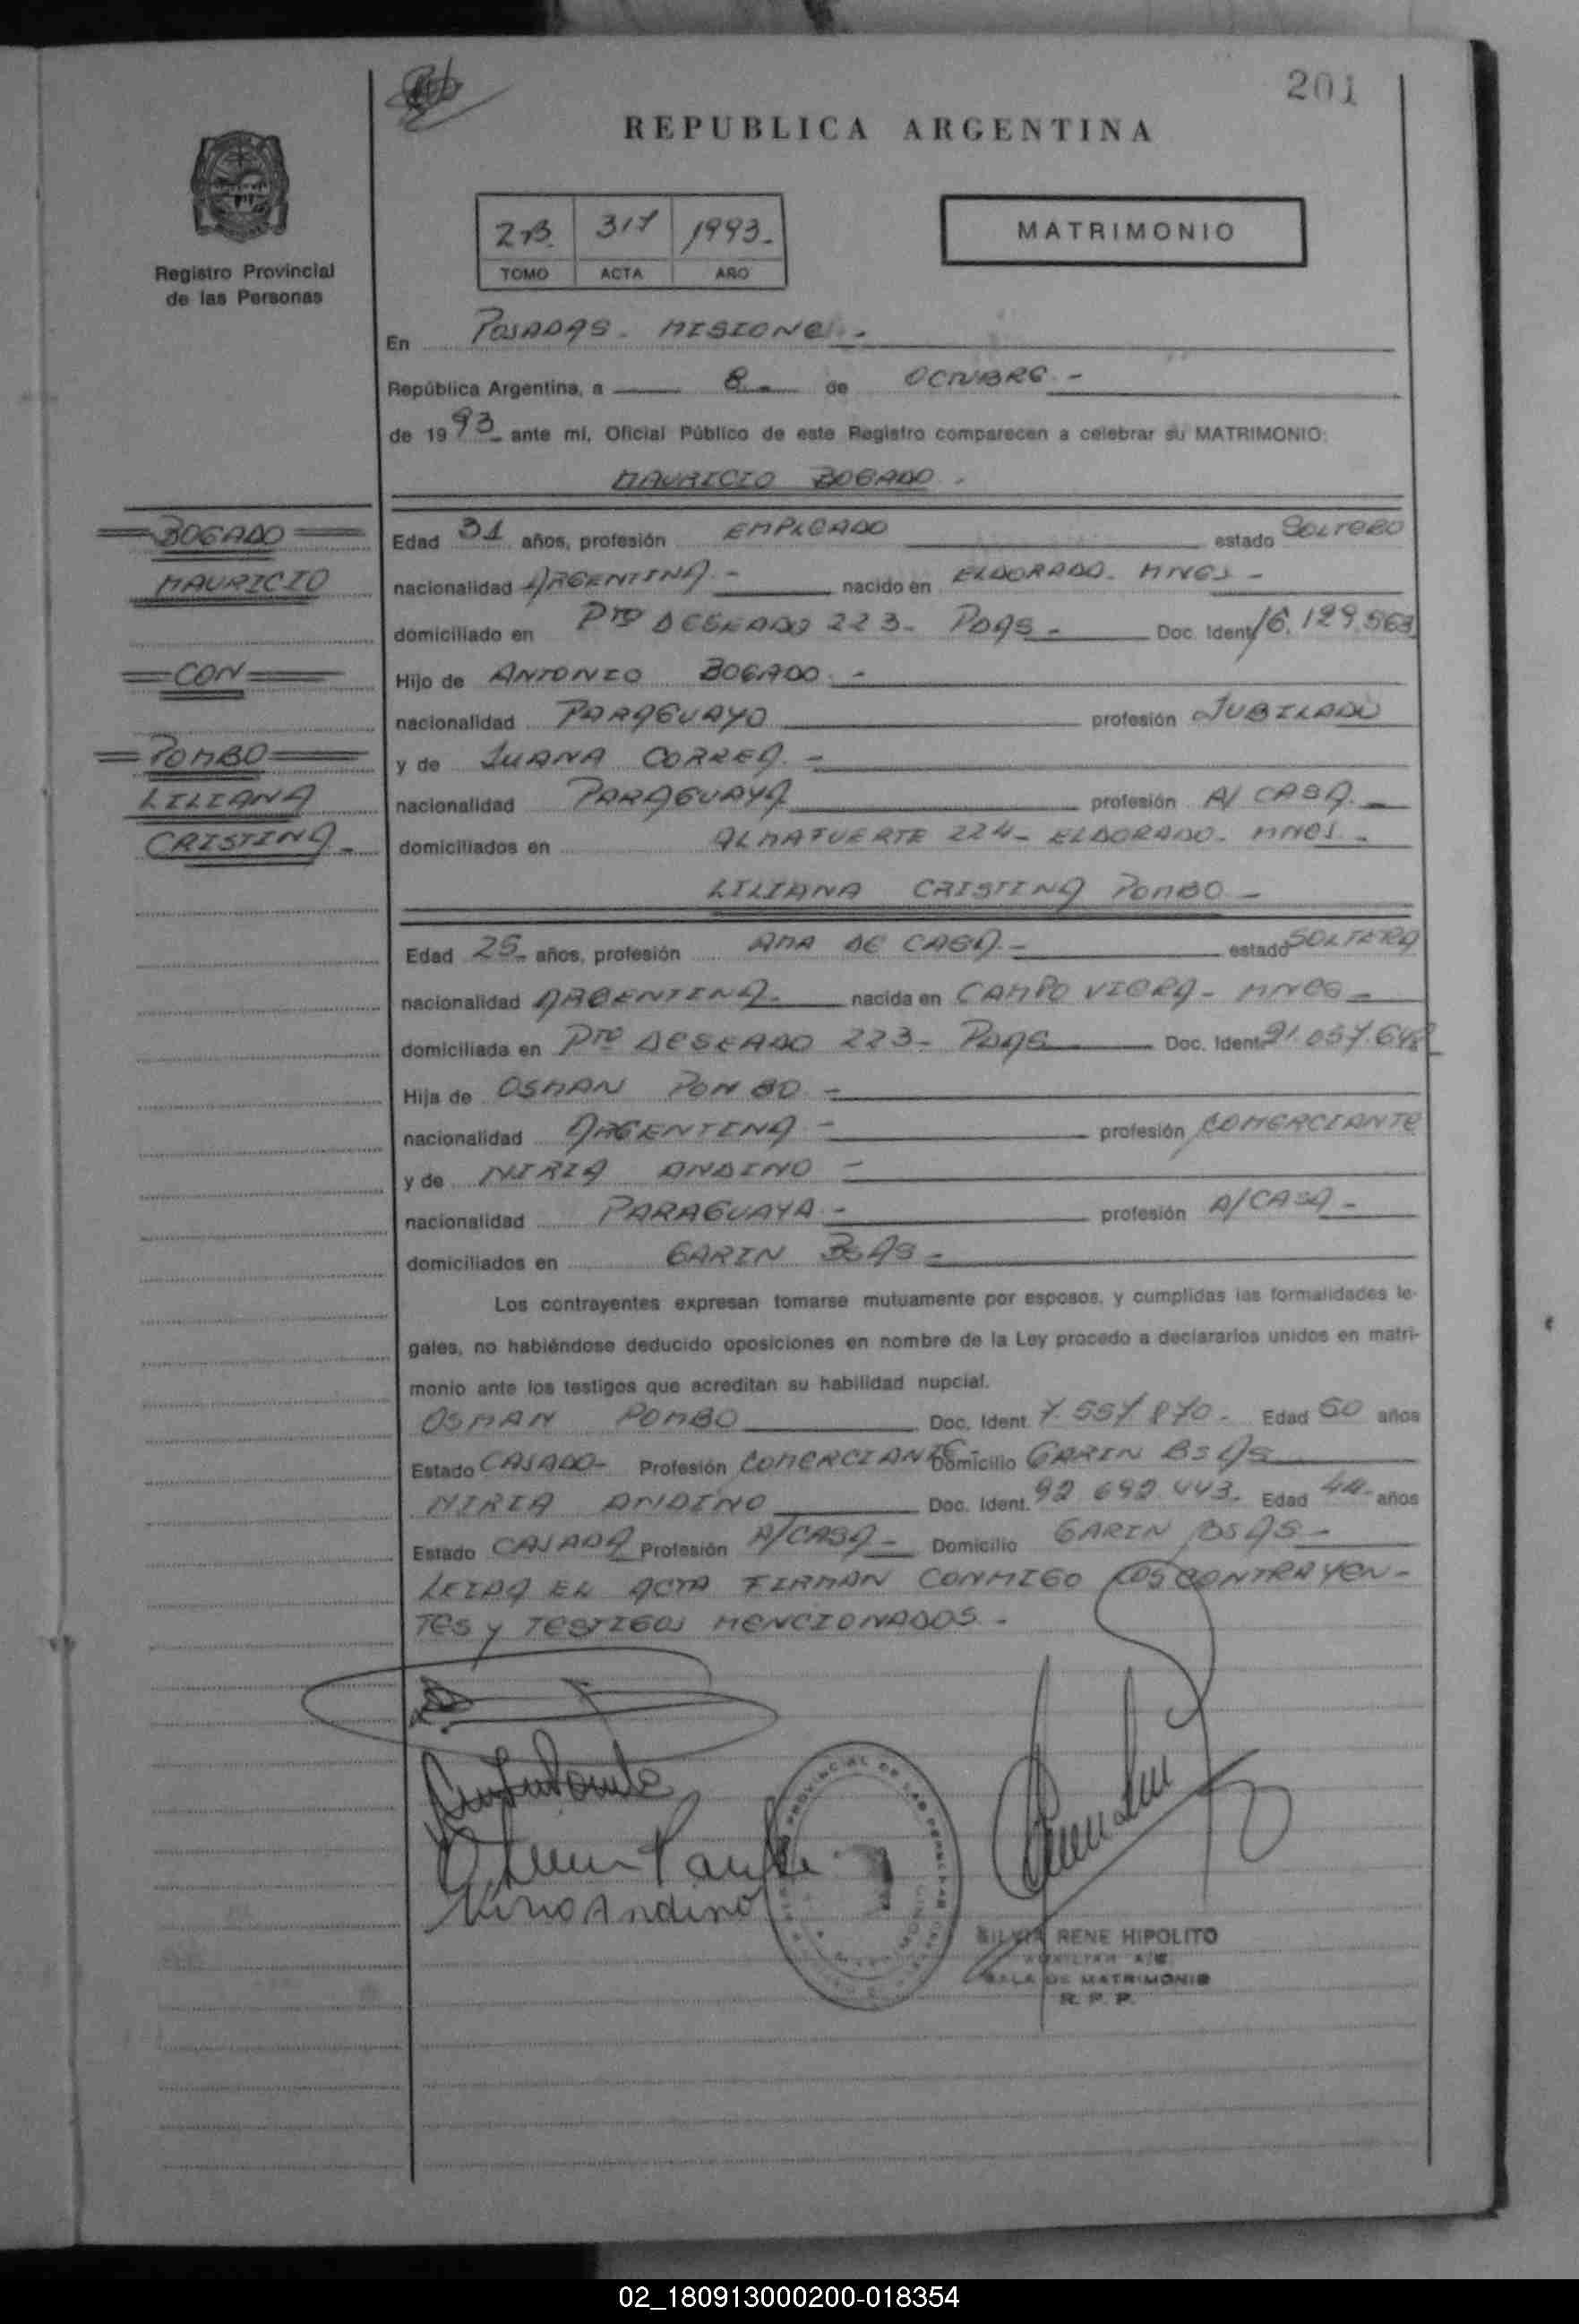 201
REPUBLICA ARGENTINA
2-B. 317 1993.-
TOMO ACTA AÑO
MATRIMONIO
Registro Provincial
de las Personas
En POSADAS - MISIONES -
República Argentina, a 8 - de OCTUBRE -
de 1993 ante mí, Oficial Público de este Registro comparecen a celebrar su MATRIMONIO:
MAURICIO BOGADO.
BOGADO
MAURICIO
CON
POMBO
LILIANA
CRISTINA -
Edad 31 años, profesión EMPLEADO estado SOLTERO
nacionalidad ARGENTINA - nacido en ELDORADO - MNES -
domiciliado en Pto DESEADO 223 - PDAS - Doc. Ident. 16.129.563
Hijo de ANTONIO BOGADO -
nacionalidad PARAGUAYO profesión JUBILADO
y de JUANA CORREA -
nacionalidad PARAGUAYA profesión A/ CASA -
domiciliados en ALMAFUERTE 224 - ELDORADO - MNES -
LILIANA CRISTINA POMBO -
Edad 25 - años, profesión AMA DE CASA - estado SOLTERA
nacionalidad ARGENTINA - nacida en CAMPO VIERA - MNES -
domiciliada en Pto DESEADO 223 - PDAS Doc. Ident. 21.057.648
Hija de OSMAN POMBO -
nacionalidad ARGENTINA - profesión COMERCIANTE
y de NIRIA ANDINO -
nacionalidad PARAGUAYA - profesión A/CASA -
domiciliados en GARIN BSAS -
Los contrayentes expresan tomarse mutuamente por esposos, y cumplidas las formalidades le-
gales, no habiéndose deducido oposiciones en nombre de la Ley procedo a declararlos unidos en matri-
monio ante los testigos que acreditan su habilidad nupcial.
OSMAN POMBO Doc. Ident. 7.557.870 - Edad 50 años
Estado CASADO - Profesión COMERCIANTE - Domicilio GARIN BSAS
NIRIA ANDINO Doc. Ident. 92.692.443 - Edad 44 - años
Estado CASADA Profesión A/CASA - Domicilio GARIN BSAS -
LEIDA EL ACTA FIRMAN CONMIGO LOS CONTRAYEN-
TES Y TESTIGOS MENCIONADOS -
Niria Andino
SILVIA RENE HIPOLITO
AUXILIAR A/C
SALA DE MATRIMONIO
R. P. P.
02_180913000200-018354